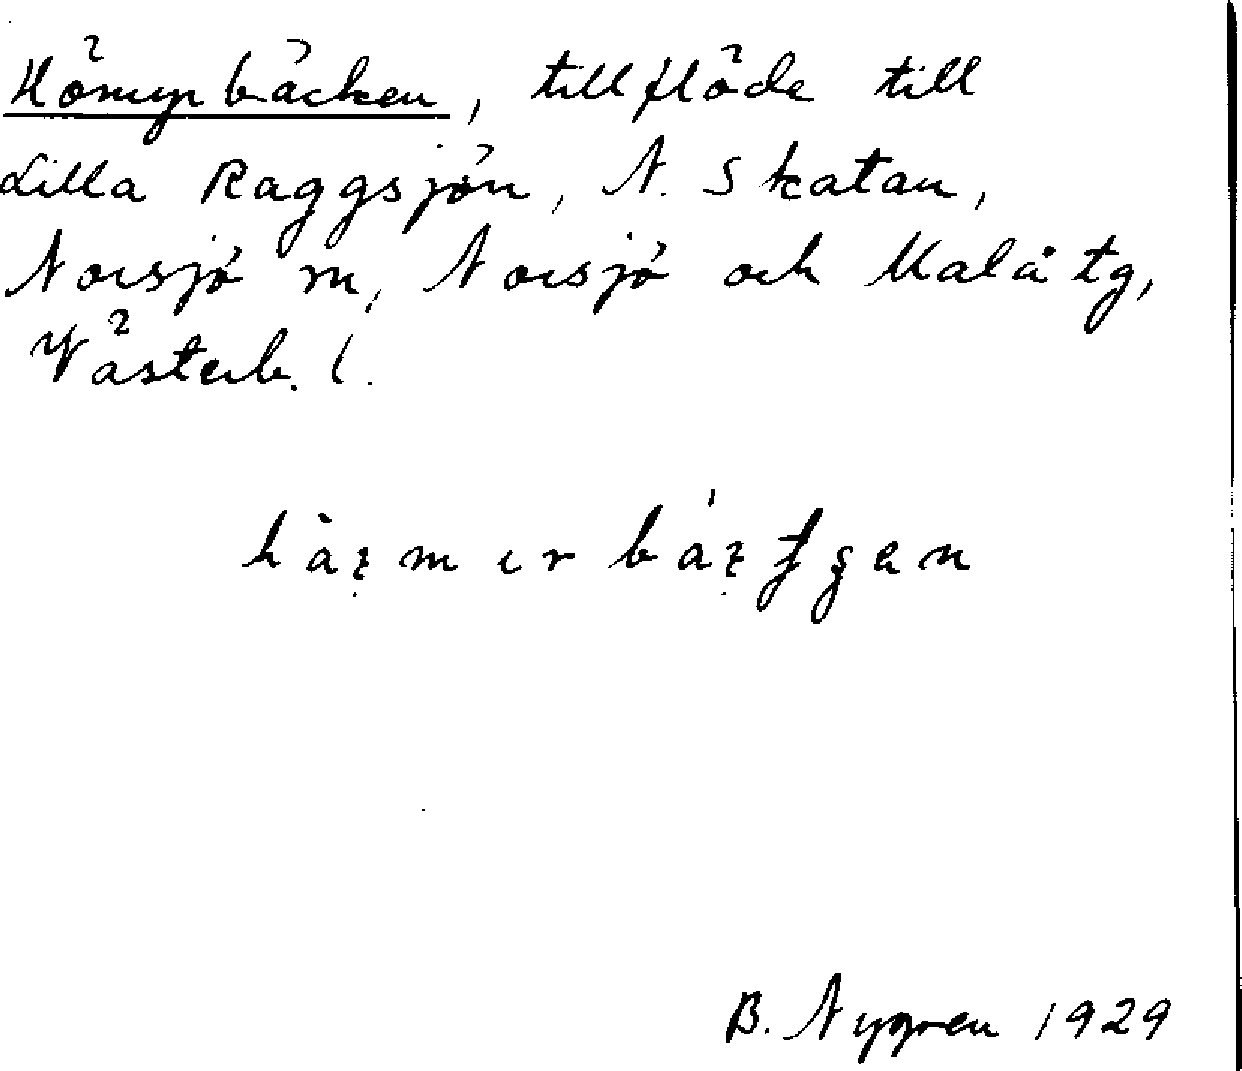 Hömyrbäcken, tillflöde till
Lilla Raggsjön, N. Skatan,
Norsjö sn, Norsjö och Malå tg,
Västerb. l.
B. Nygren 1929